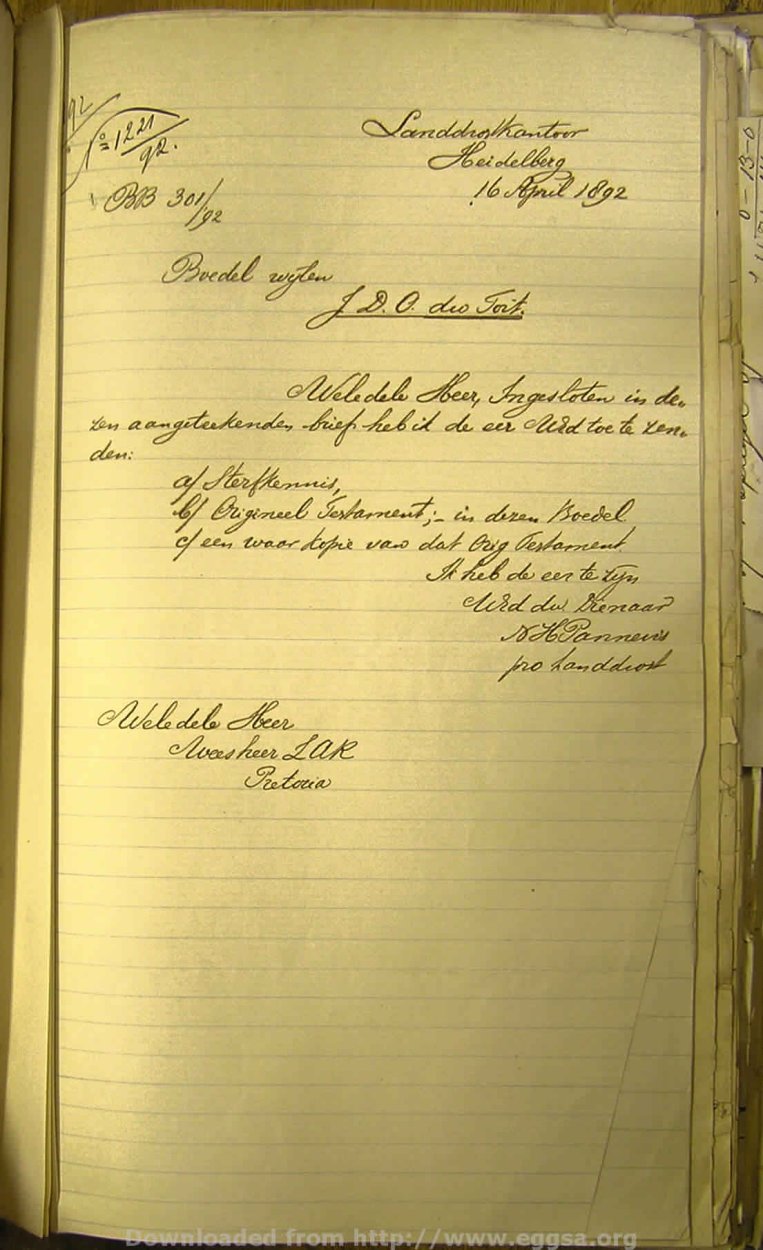 No 1221/92.
Landdrostkantoor
Heidelberg
16 April 1892
BB 301/92
Boedel wijlen
J. D. O. du Toit.
Weledele Heer, Ingesloten in de-
zen aangeteekenden brief heb ik de eer UEd toe te zen-
den:
a/ Sterfkennis,
b/ Origineel Testament;- in dezen Boedel
c/ een waar kopie van dat Orig Testament
Ik heb de eer te zijn
UEd dw. Dienaar
N H Pannevis
pro Landdrost
Weledele Heer
Weesheer ZAR
Pretoria
Downloaded from http://www.eggsa.org